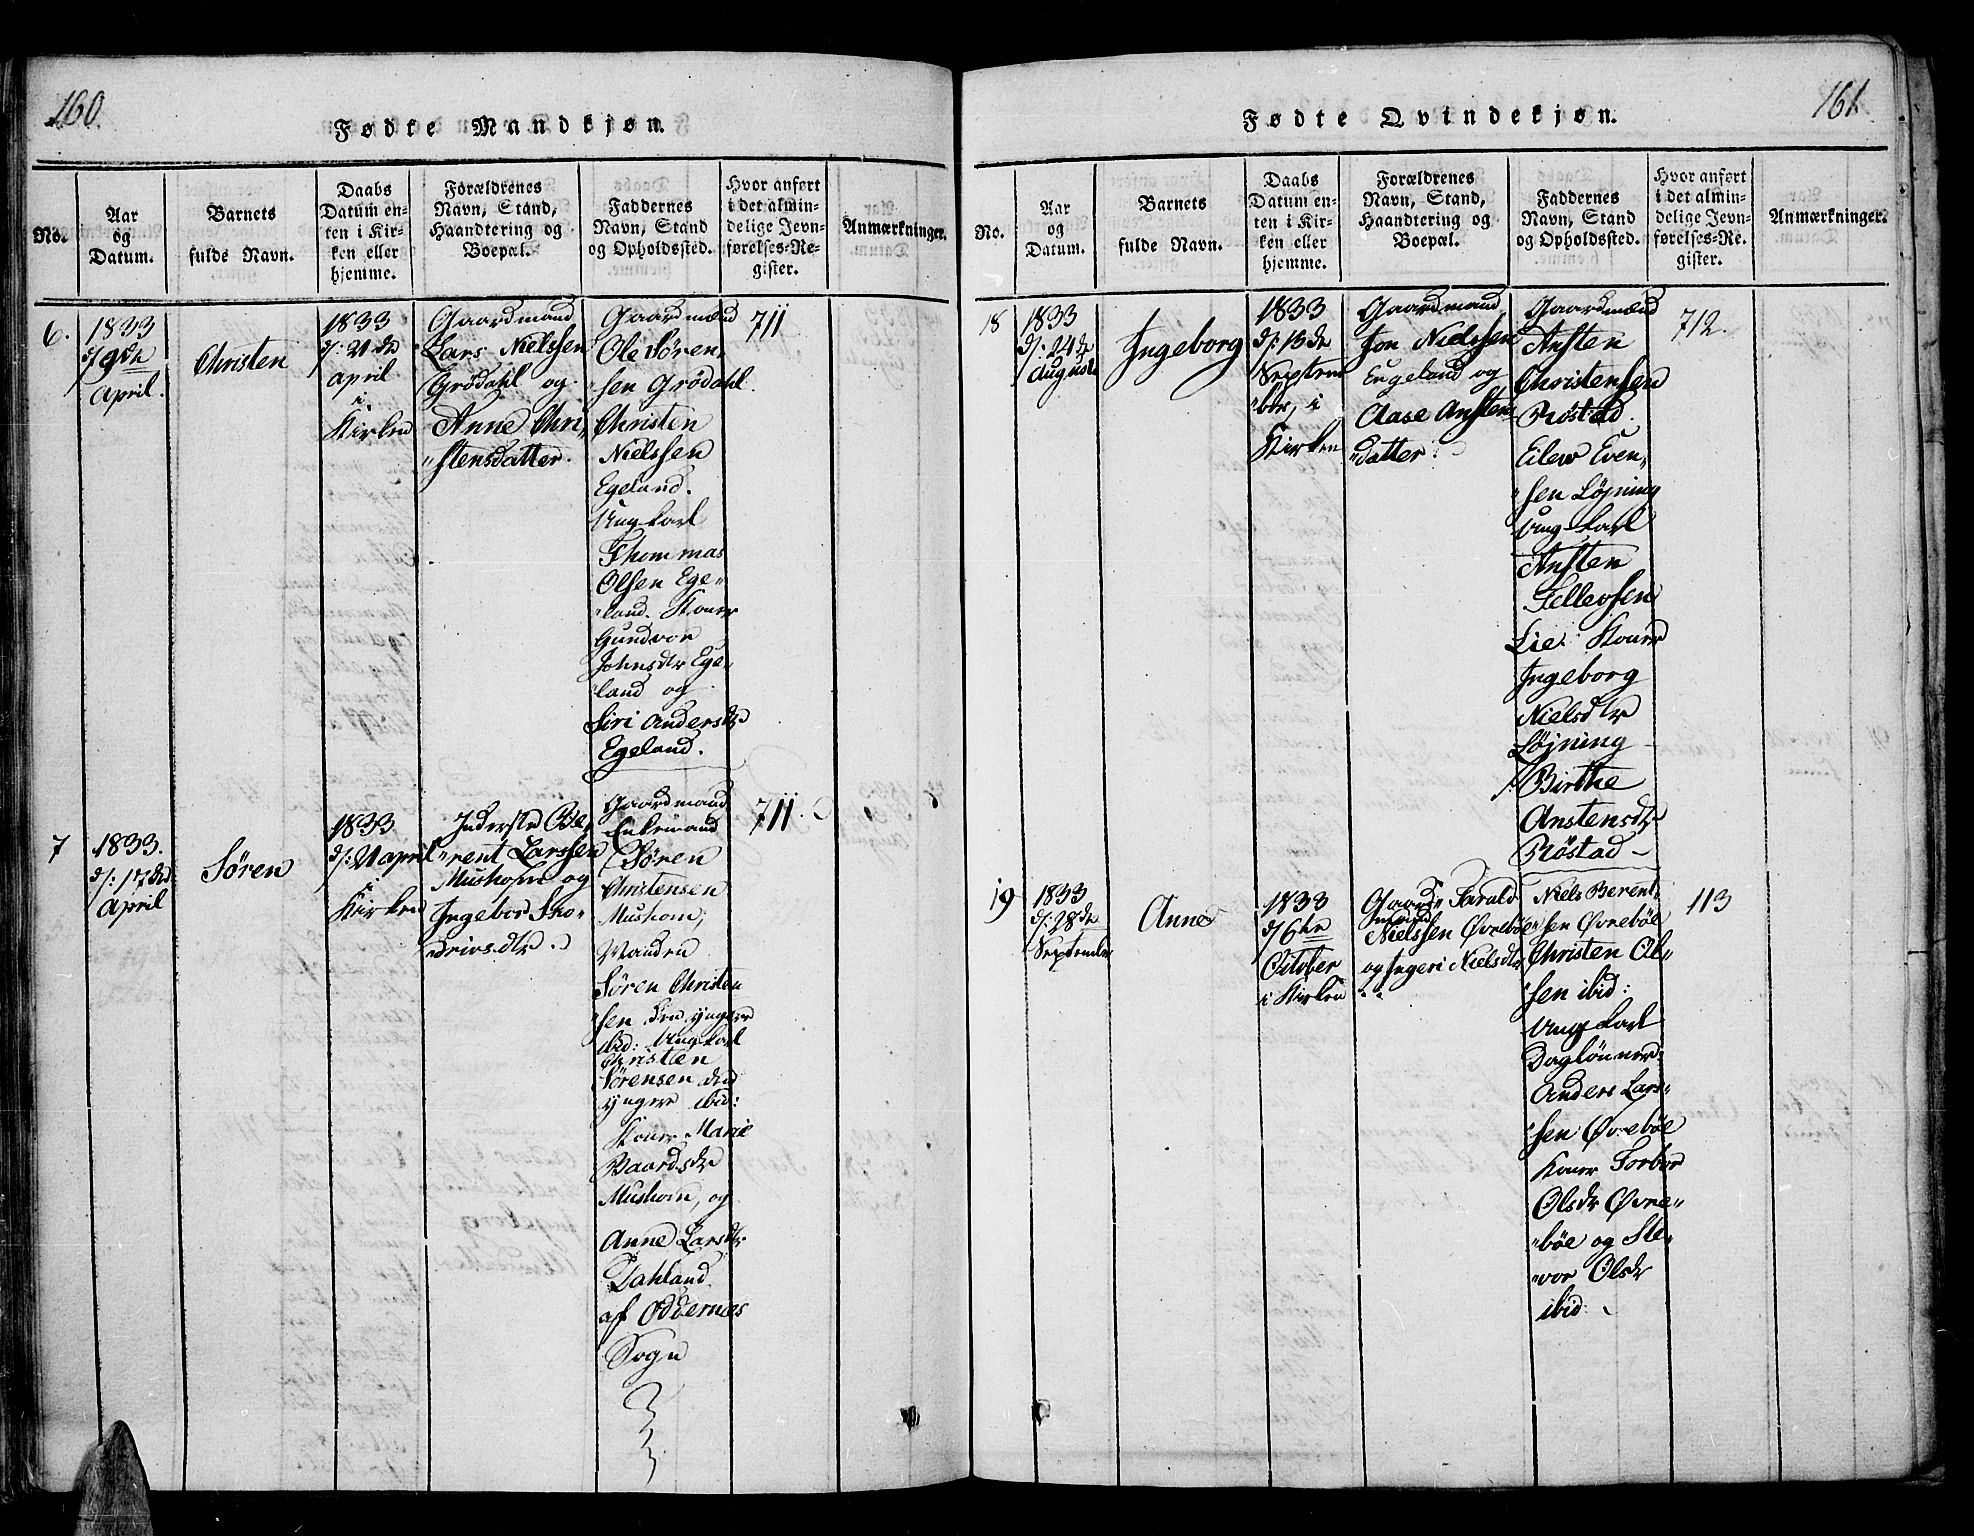 160.
Fødte Mandkjøn.
No.
Aar
og
Datum.
Barnets
fulde Navn.
Daabs
Datum en-
ten i Kir-
ken eller
hjemme.
Forældrenes
Navn, Stand,
Haandtering og
Boepæl.
Faddernes
Navn, Stand
og Opholdssted.
Hvor anført
i det almin-
delige Jevn-
førelses-Re-
gister.
Anmærkninger.
6.
1833
d/9de
April.
Christen
1833
d/: 21de
april
i
Kirken
Gaardmand
Lars Nielssen
Grödahl og
Anne Chri„
„stensdatter.
Gaardmænd
Ole Sören„
„sen Grödahl.
Christen
Nielssen
Egeland.
Ungkarl
Thommas
Olsen Ege„
„land. Koner
Gundvor
Johnsdtr Ege„
„land og
Siri Andersdtr
Egeland.
711
7
1833.
d/: 17de
April
Sören
1833
d/: 21 april
i
Kirken
Inderste Be„
„rent Larssen
Mushom og
Ingebor Tho„
drivsdtr.
Gaardmand
Enkemand
Sören
Christensen
Mushom,
Manden
Sören Christen
„sen den yngere
ibid: Ungkarl
Christen
Sörensen den
yngere ibid:
Koner Marie
Baardsdtr
Mushom, og
Anne Larsdtr
Dahland
af Oddernes
Sogn
711.
161
Fødte Qvindekjøn.
No.
Aar
og
Datum.
Barnets
fulde Navn.
Daabs
Datum en-
ten i Kir-
ken eller
hjemme.
Forældrenes
Navn, Stand,
Haandtering og
Boepæl.
Faddernes
Navn, Stand
og Opholdssted.
Hvor anført
i det almin-
delige Jevn-
førelses-Re-
gister.
Anmærkninger.
18
1833
d/: 24de
August
Ingeborg
1833
d/: 15de
Septem
„ber, i
Kirken
Gaardmand
Jon Nielssen
Engeland og
Aase Ansten„
„datter.
Gaardmænd
Ansten
Christensen
Röstad.
Eilev Even„
„sen Löjning
Ungkarl
Ansten
Tellevsen
Lie. Koner
Ingeborg
Nielsdtr
Löjning
Birthe
Anstensdtr
Röstad
712.
19
1833
d/: 28de
September
Anne
1833
d/6te
October
i Kirken
Gaard„ Tarald
mand
Nielssen Øvrebøe
og Ingeri Nielsdtr
Niels Berent„
„sen Øvrebøe
Christen Ol„
„sen ibid:
Ungkarl
Daglönner
Anders Lars„
„sen Øvrebøe
Koner Torbor
Olsdr Øvre„
„bøe og Sle„
„vor Olsdr
ibid:
113